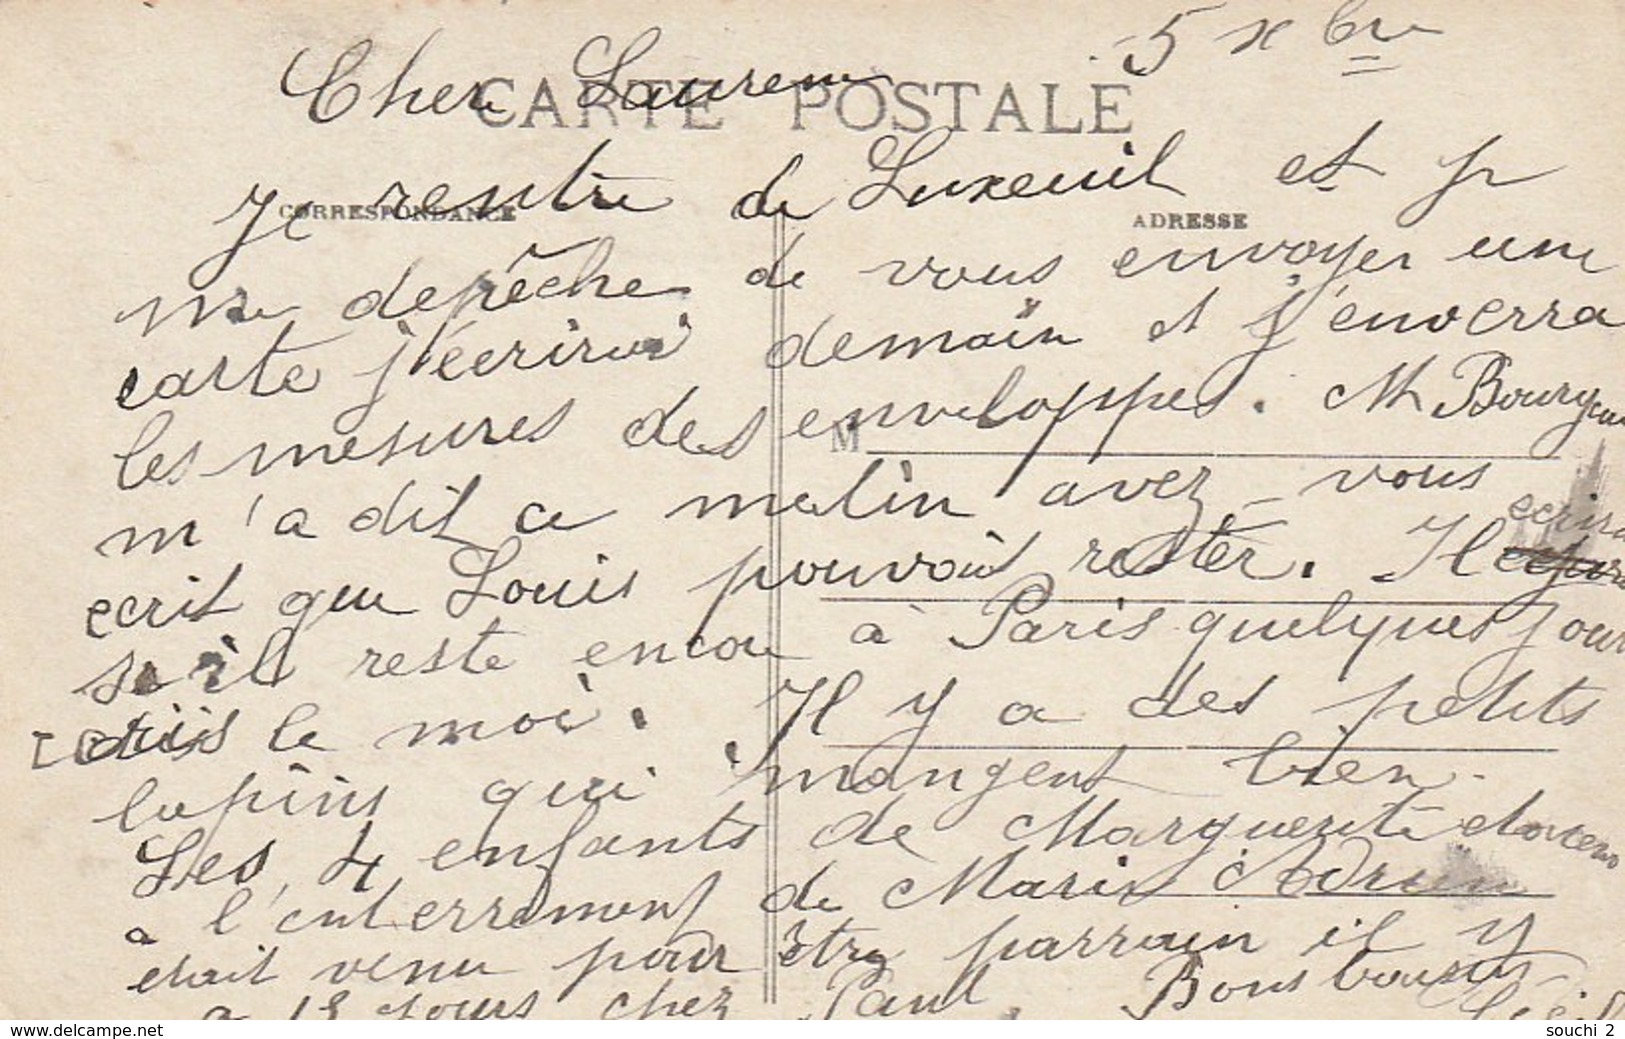 5 xbre
Cher Laurent
CARTE POSTALE
Je rentre de Luxeuil et je
CORRESPONDANCE
ADRESSE
me depêche de vous envoyer une
carte j'écrirai demain et j'enverra
les mesures des enveloppes. M Bourgeau
M
m'a dit ce matin avez-vous
ecrit que Louis pouvait rester. Il ecrira
s'il reste encore à Paris quelques jours
dis le moi. Il y a des petits
lapins qui mangent bien.
Les 4 enfants de Marguerite étaient
a l'enterrement de Marie Adrien
était venu pour être parrain il y
a 18 jours chez Paul. Bons baisers
Cécile
www.delcampe.net
souchi 2